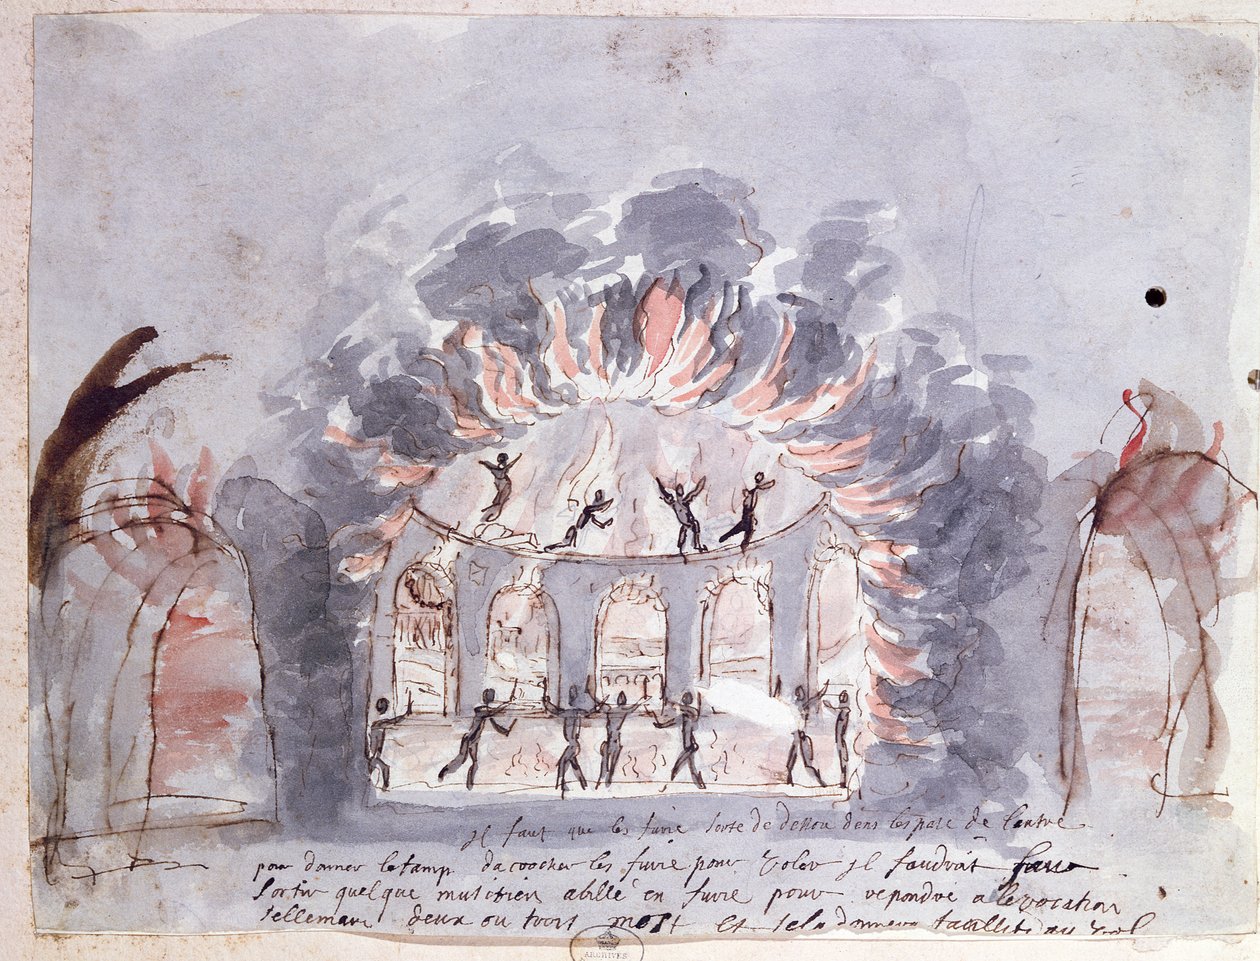 il faut que les furie sorte de desou dens lespase de lentre
pour donner le tamp dacrocher les furie pour voler il faudrat faire
sortir quelque musitien abillé en furie pour repondre a levocation
sellemant deux ou trois most Et sela donnera au vol
ARCHIVES